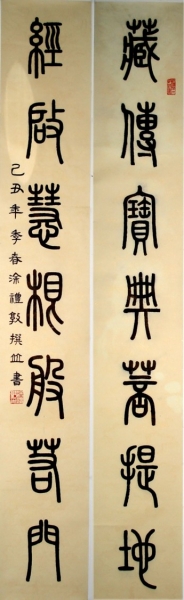 藏傳寶典菩提地
經啟慧根般若門
己丑年季春涂禮敦撰並書